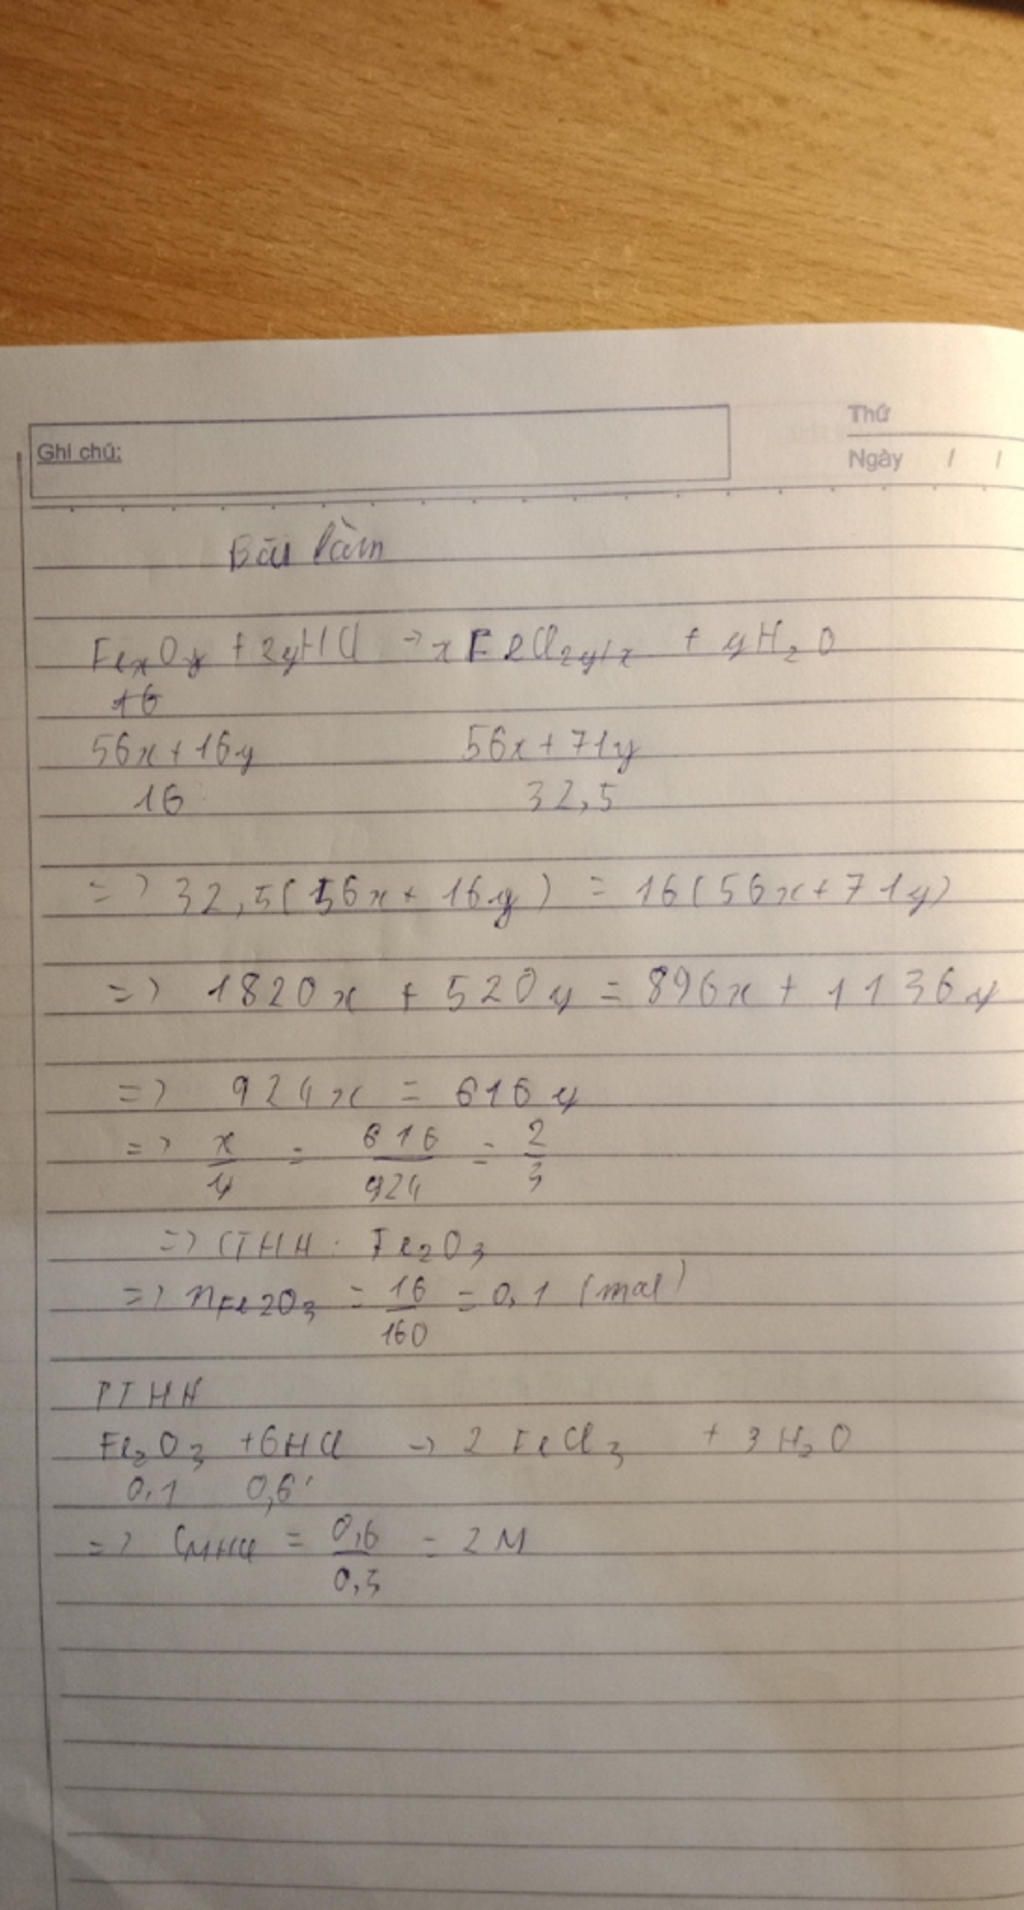 Ghi chú:
Thứ
Ngày / /
Bài làm
FexOy + 2yHCl → xFeCl2y/x + yH2O
16
56x + 16y 56x + 71y
16 32,5
=> 32,5(56x + 16y) = 16(56x + 71y)
=> 1820x + 520y = 896x + 1136y
=> 924x = 616y
=> x/y = 616/924 = 2/3
=> CTHH: Fe2O3
=> nFe2O3 = 16/160 = 0,1 (mol)
PTHH
Fe2O3 + 6HCl → 2FeCl3 + 3H2O
0,1 0,6
=> CMHCl = 0,6/0,3 = 2M